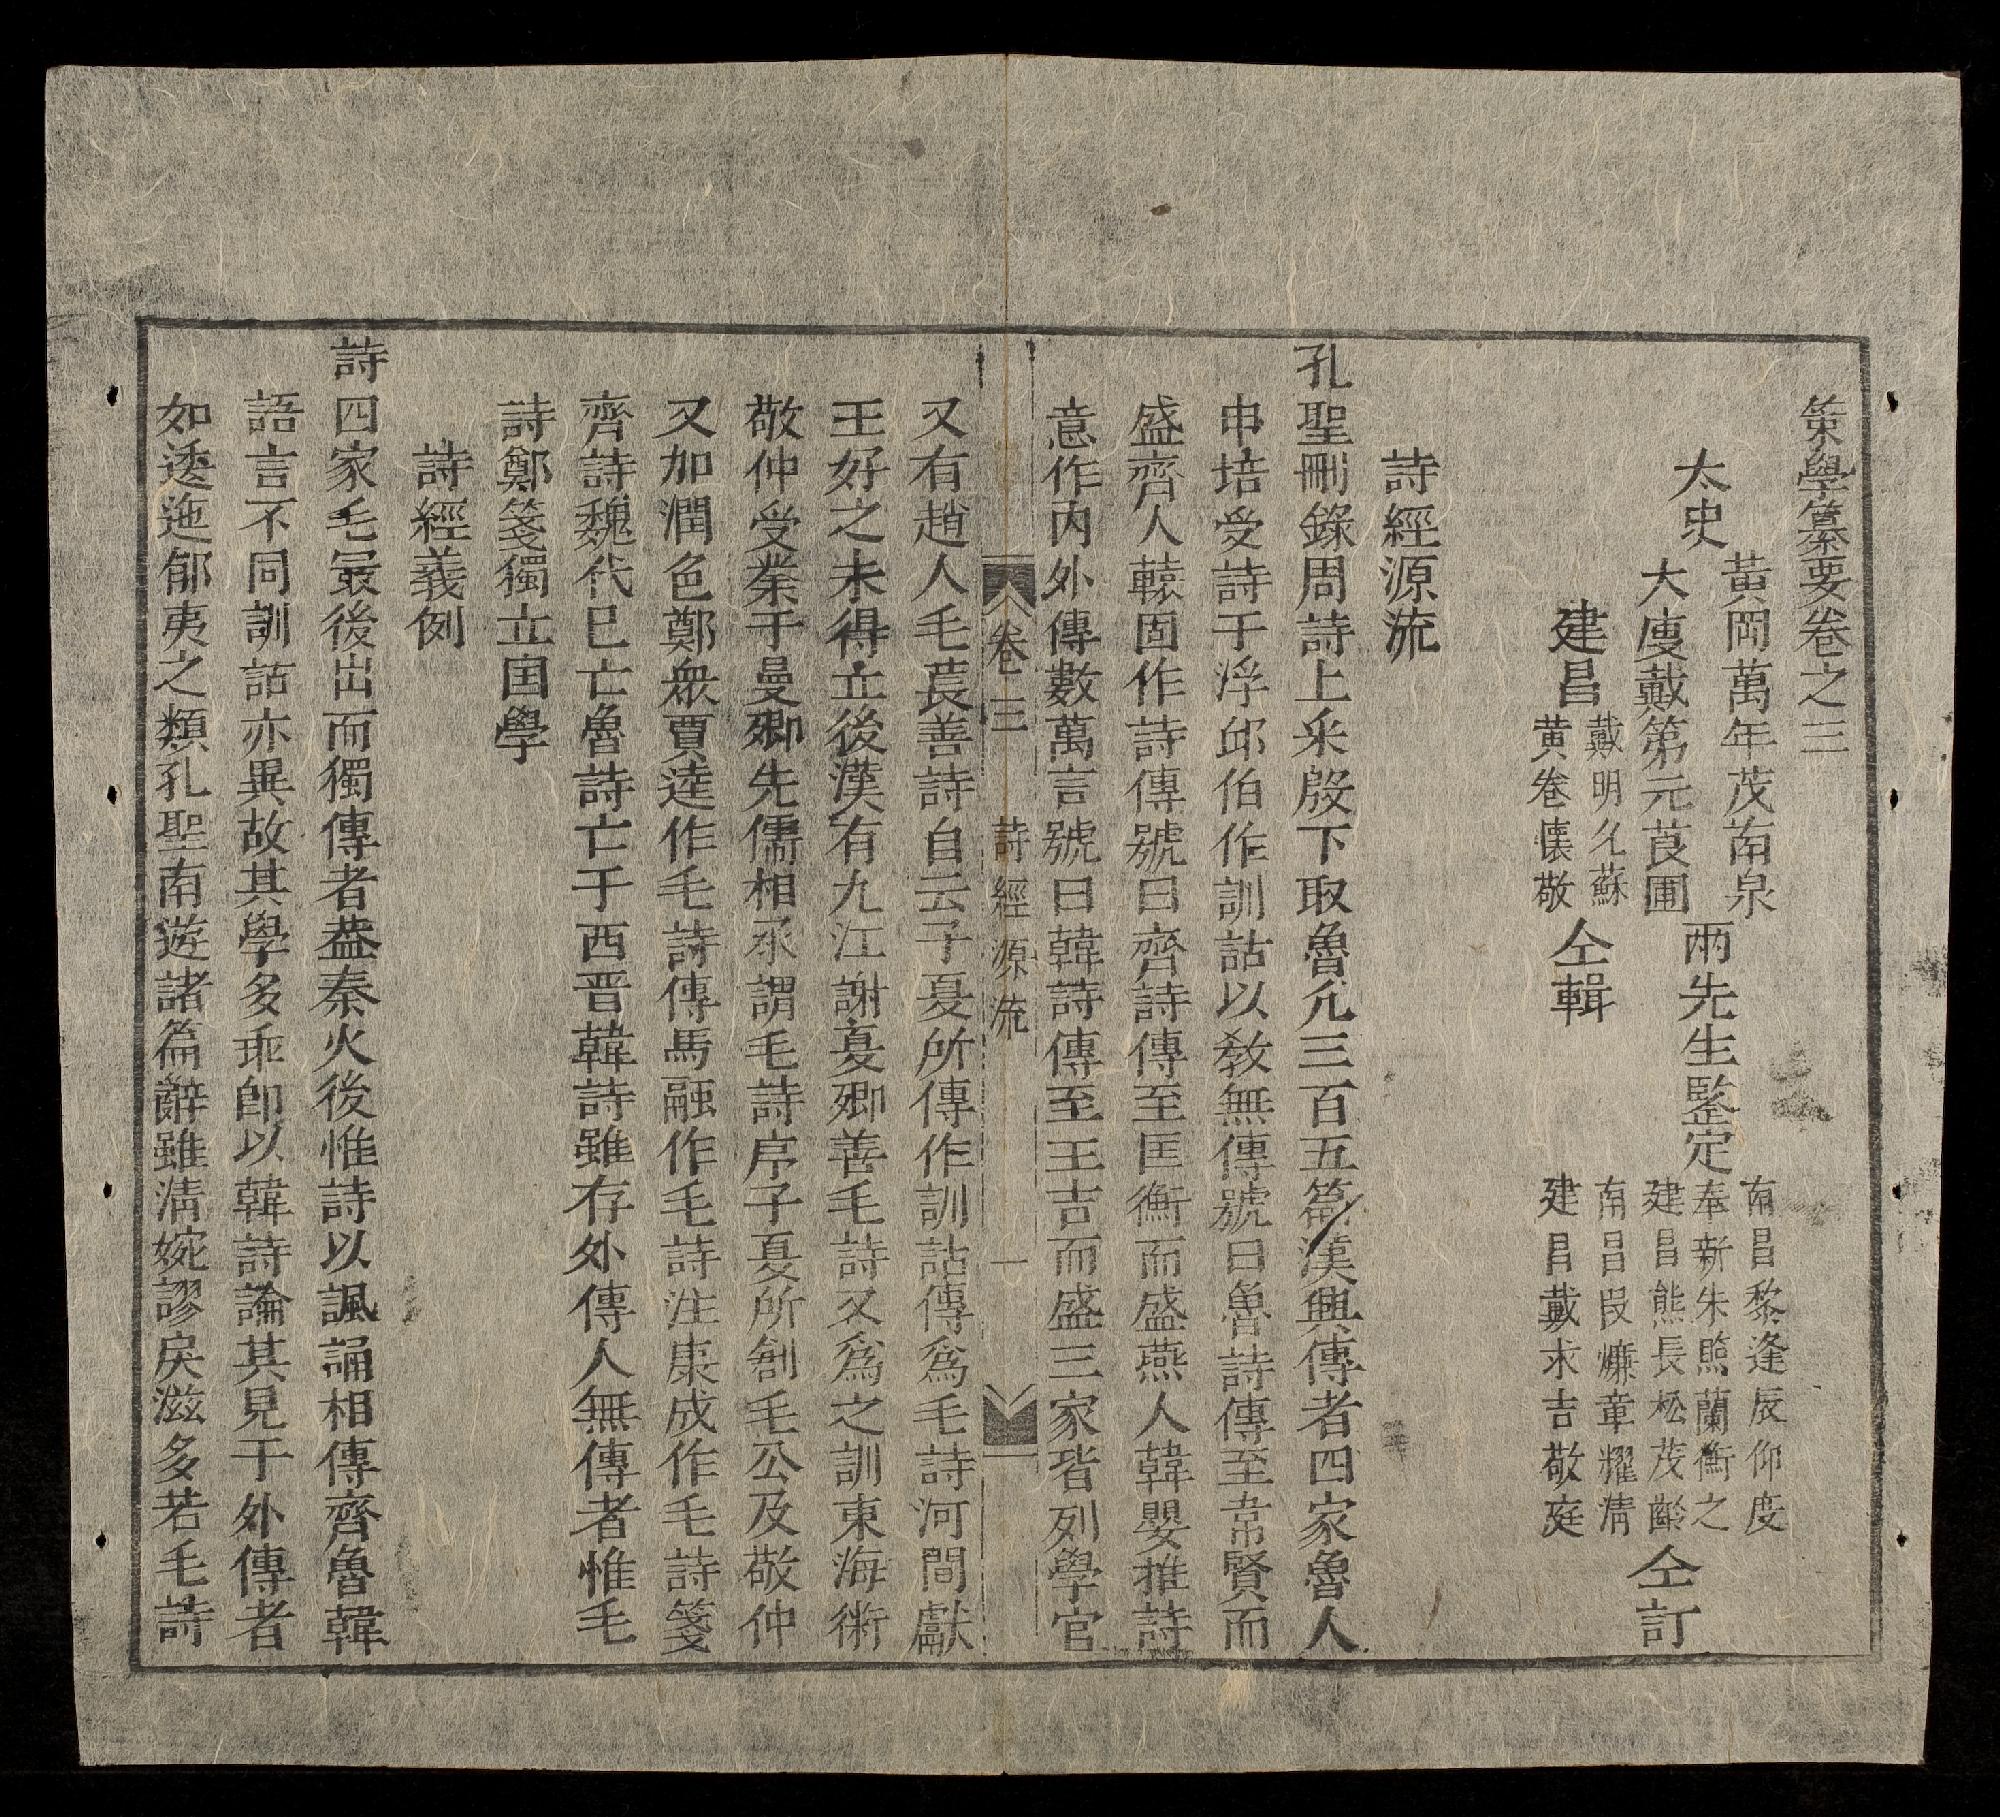 策學纂要卷之三
黃岡萬年茂南泉
太史
大庾戴第元莨圃
兩先生鑒定
建昌
戴明久蘇
黄卷懷敬
仝輯
南昌黎逢辰仰度
奉新朱熊蘭衡之
建昌熊長松茂齡
南昌段㷿章耀淸
建昌戴求吉敬庭
仝訂
詩經源流
孔聖刪錄周詩上釆殷下取魯凢三百五篇漢興傳者四家魯人
申培受詩于浮邱伯作訓詁以敎無傳號曰魯詩傳至韋賢而
盛齊人轅固作詩傳號曰齊詩傳至匡衡而盛燕人韓嬰推詩
意作內外傳數萬言號曰韓詩傳至王吉而盛三家皆列學官
卷三 詩經源流 一
又有趙人毛萇善詩自云子夏所傳作訓詁傳爲毛詩河間獻
王好之未得立後漢有九江謝夏卿善毛詩又爲之訓東海衛
敬仲受業于曼卿先儒相承謂毛詩序子夏所創毛公及敬仲
又加潤色鄭衆賈逵作毛詩傳馬融作毛詩注康成作毛詩箋
齊詩魏代已亡魯詩亡于西晋韓詩雖存外傳人無傳者惟毛
詩鄭箋獨立国學
詩經義例
詩四家毛㝡後出而獨傳者葢秦火後惟詩以諷誦相傳齊魯韓
語言不同訓詁亦異故其學多乖卽以韓詩論其見于外傳者
如逶迤郁夷之類孔聖南遊諸篇辭雖淸婉謬戾滋多若毛詩